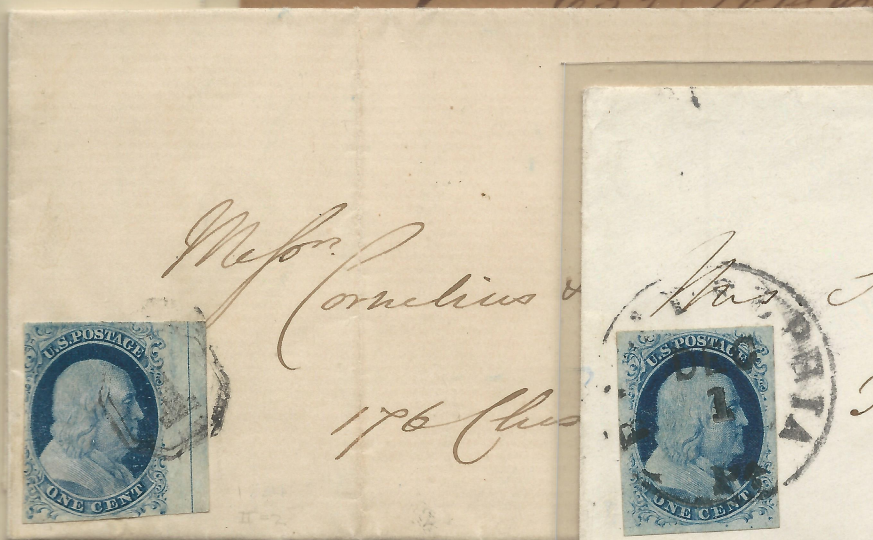 Messrs
Cornelius &
176 Ches
U.S. POSTAGE
ONE CENT
Mrs.
PHIA
DEC
1
U.S. POSTAGE
ONE CENT